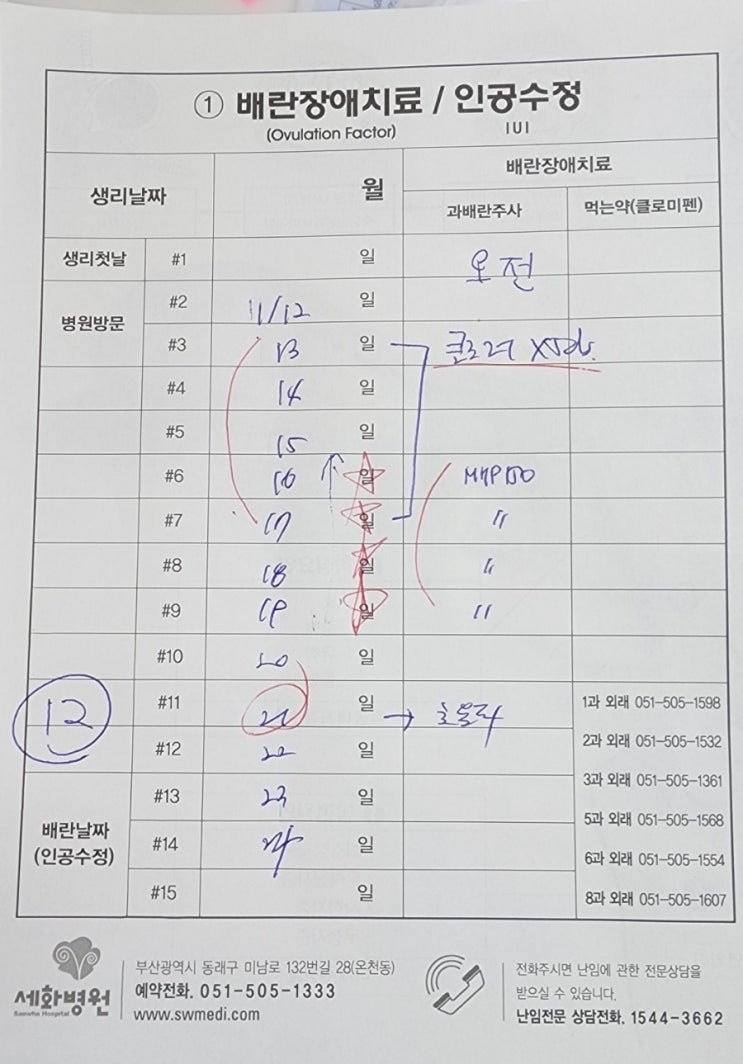 ① 배란장애치료 / 인공수정
(Ovulation Factor) IUI
생리날짜 월 배란장애치료
과배란주사 먹는약(클로미펜)
생리첫날 #1 일 오전
병원방문 #2 11/12 일
#3 13 일
#4 14 일
#5 15 일
#6 16 일
#7 17 일 "
#8 18 일 "
#9 19 일 "
#10 20 일
12 #11 21 일 → 1과 외래 051-505-1598
#12 22 일 2과 외래 051-505-1532
배란날짜
(인공수정)
#13 23 일 3과 외래 051-505-1361
#14 24 일 5과 외래 051-505-1568
6과 외래 051-505-1554
#15 일 8과 외래 051-505-1607
세화병원
Saewha Hospital
부산광역시 동래구 미남로 132번길 28(온천동)
예약전화. 051-505-1333
www.swmedi.com
전화주시면 난임에 관한 전문상담을
받으실 수 있습니다.
난임전문 상담전화. 1544-3662